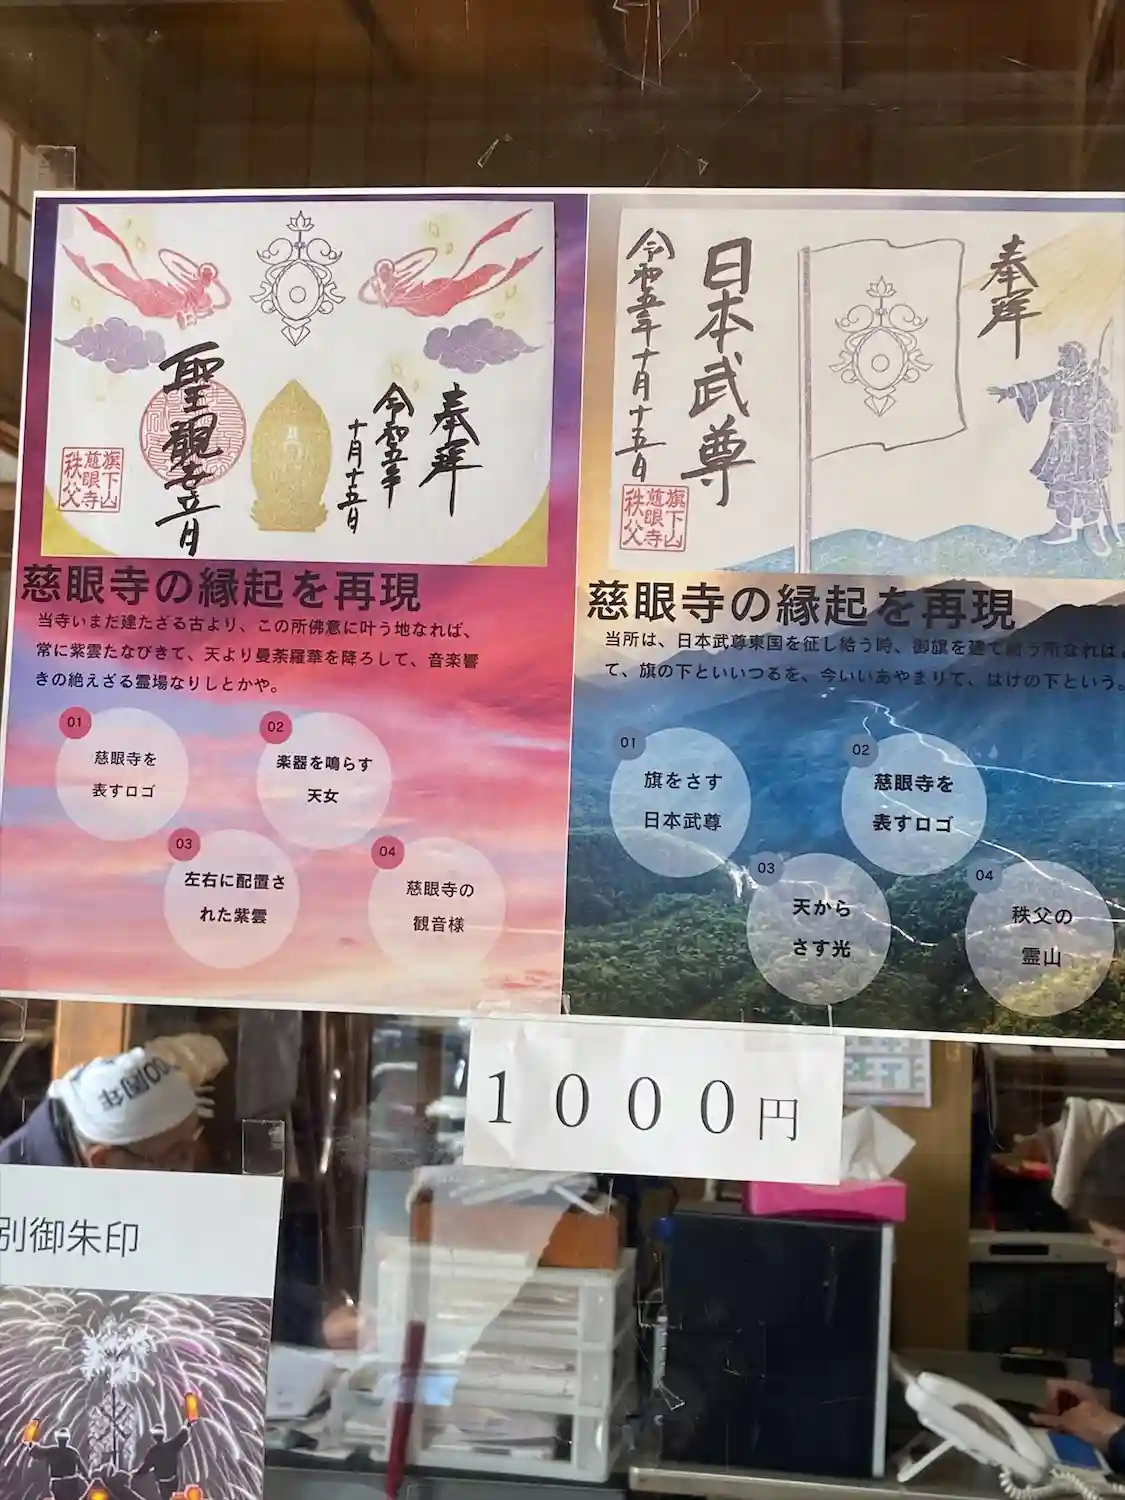 奉拝
令和五年
十月十五日
聖観世音
旗下山
慈眼寺
秩父
慈眼寺の縁起を再現
当寺いまだ建たざる古より、この所佛意に叶う地なれば、
常に紫雲たなびきて、天より曼荼羅華を降ろして、音楽響
きの絶えざる霊場なりしとかや。
01
慈眼寺を
表すロゴ
02
楽器を鳴らす
天女
03
左右に配置さ
れた紫雲
04
慈眼寺の
観音様
奉拝
日本武尊
令和五年十月十五日
旗下山
慈眼寺
秩父
慈眼寺の縁起を再現
当所は、日本武尊東国を征し給う時、御旗を建て給う所なれば
て、旗の下といいつるを、今いいあやまりて、はけの下という。
01
旗をさす
日本武尊
02
慈眼寺を
表すロゴ
03
天から
さす光
04
秩父の
霊山
1000円
00周年
別御朱印